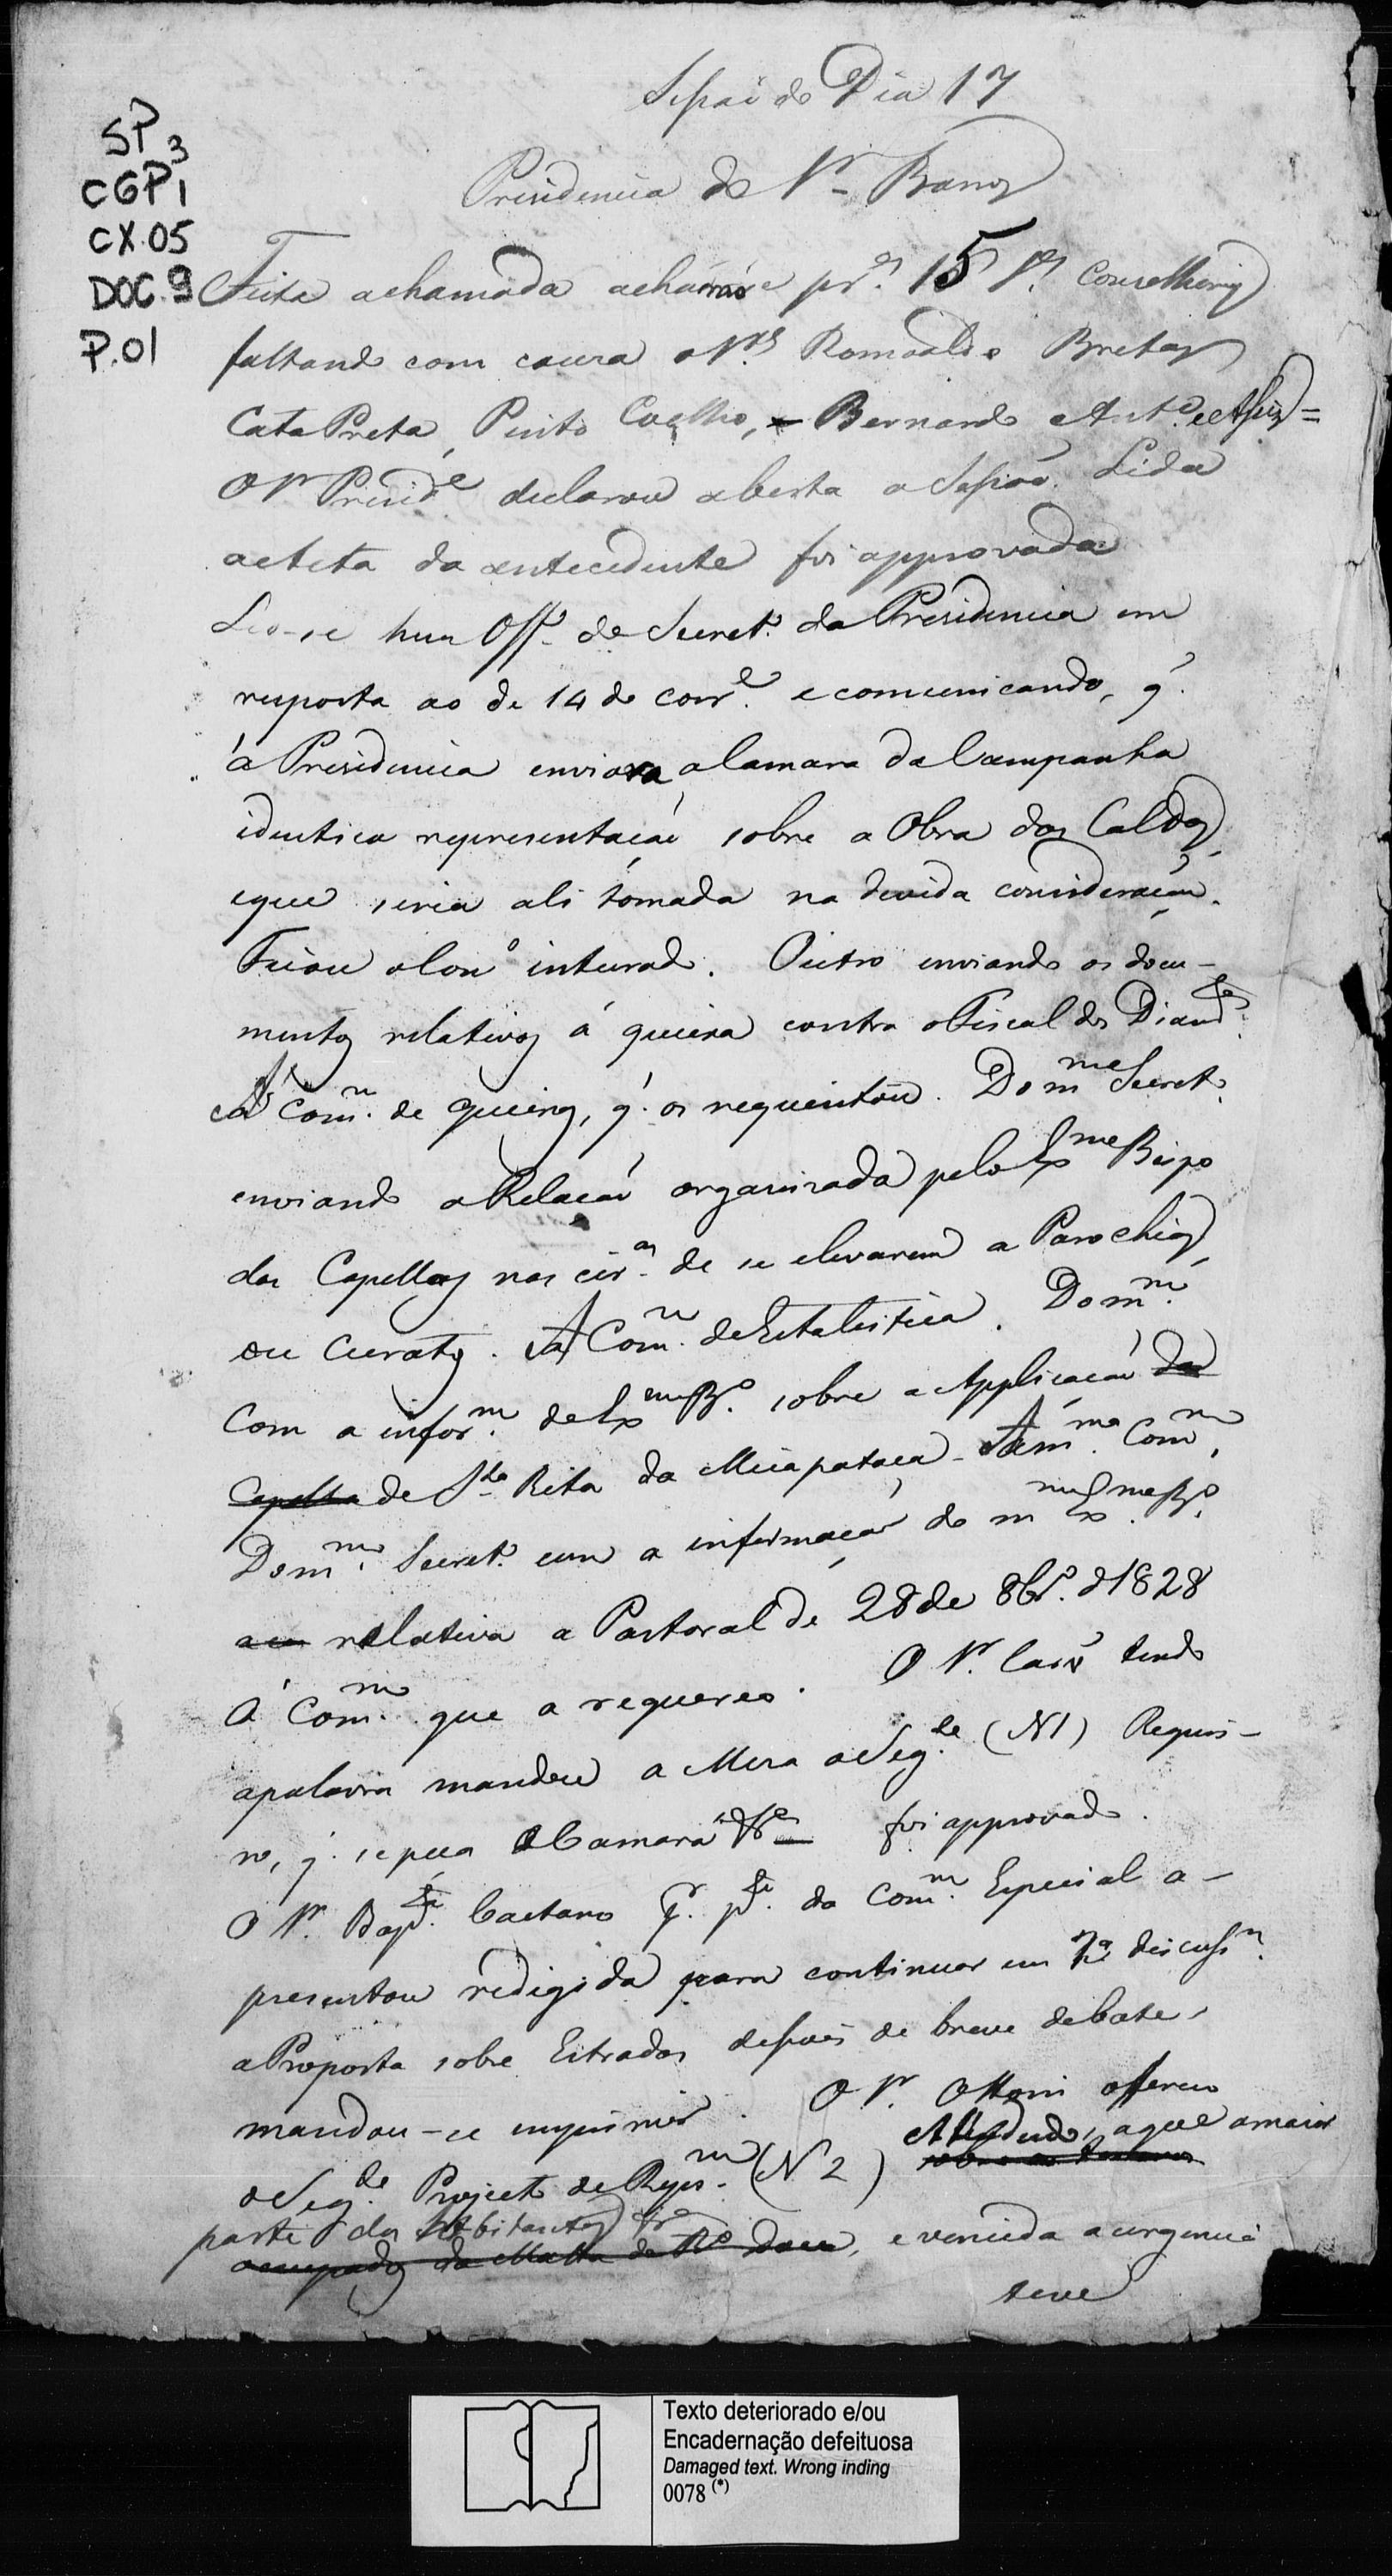 Sessaõ do Dia 17
SP 3
CGP 1
CX.05
DOC.9
P.01
Presidencia do Sr. Barros
Feita a chamada acharaõ-se pres. 15 Srs. Conselheiros
faltando com causa os Srs. Romoaldo Bretas
Cata Preta, Pinto Coelho, Bernardo e Antº. e Assiz =
O Sr Presid.e declarou aberta a Sessaõ. Lida
a Acta da antecedente foi approvada
Leo-se hum Off.º do Secret.º da Presidencia em
resposta ao de 14 do corr.e e comunicando, q.
a Presidencia enviara a Camara da Campanha
identica representaçaõ sobre a Obra das Caldas,
e que seria ali tomada na devida consideraçaõ.
Ficou o Con.º inteirado. Outro enviando os docu-
mentos relativos á queixa contra o Fiscal dos Diam.tes
Á Com.m de queixas, q. os requisitou. Do m.mo Secret.º
enviando a Relaçaõ organizada pelo Ex.mo Bispo
das Capellas nas cir.as de se elevarem a Parochias,
ou Curatos. Á Com.m de Estatistica. Do m.mo
com a infor.m do Ex.mo B.º sobre a Applicaçaõ da
Capella de S.ta Rita da Meiapataca. Á m.ma Com.m
Do m.mo Secret.º com a informaçaõ do m.mo Ex.mo B.º
relativa a Pastoral de 28 de 8br.º d 1828
Á Com.m que a requereo. O Sr. tendo
a palavra mandou a Mesa o Seg.te (N 1) Requeiro
ro, q. se peça á Camara &c foi approvado.
O Sr. Bap.ta Caetano p.r p.te da Com.m Especial a-
presentou redigida para continuar em 2ª discuss.m
a Proposta sobre Estradas depois de breve debate,
mandou-se imprimir. O Sr. Ottoni offereceo
Attendendo, a que a maior
o Seg.te Projecto de Repres.m (N 2)
parte dos Habitantes &c
ocupados da Matta do Rº Doce, e vencida a urgencia
teve
Texto deteriorado e/ou
Encadernação defeituosa
Damaged text. Wrong inding
0078 (*)